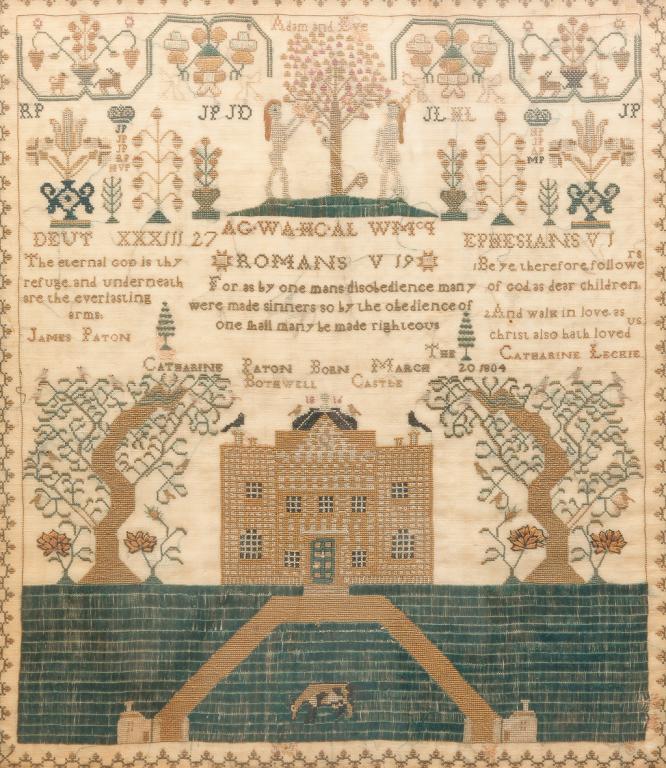 Adam and Eve
RP
JP JD
JL HL
JP
JP
MP
AG·WA·HC·AL WMcq
DEUT XXXIII 27
The eternal God is thy
refuge and underneath
are the everlasting
arms:
James Paton
ROMANS V 19
For as by one mans disobedience many
were made sinners so by the obedience of
one shall many be made righteous
EPHESIANS V 1
1 Be ye therefore followe rs
of God as dear children
2 And walk in love as
christ also hath loved us
Catharine Leckie
Catharine Paton Born March The 20 1804
Bothwell Castle
1816